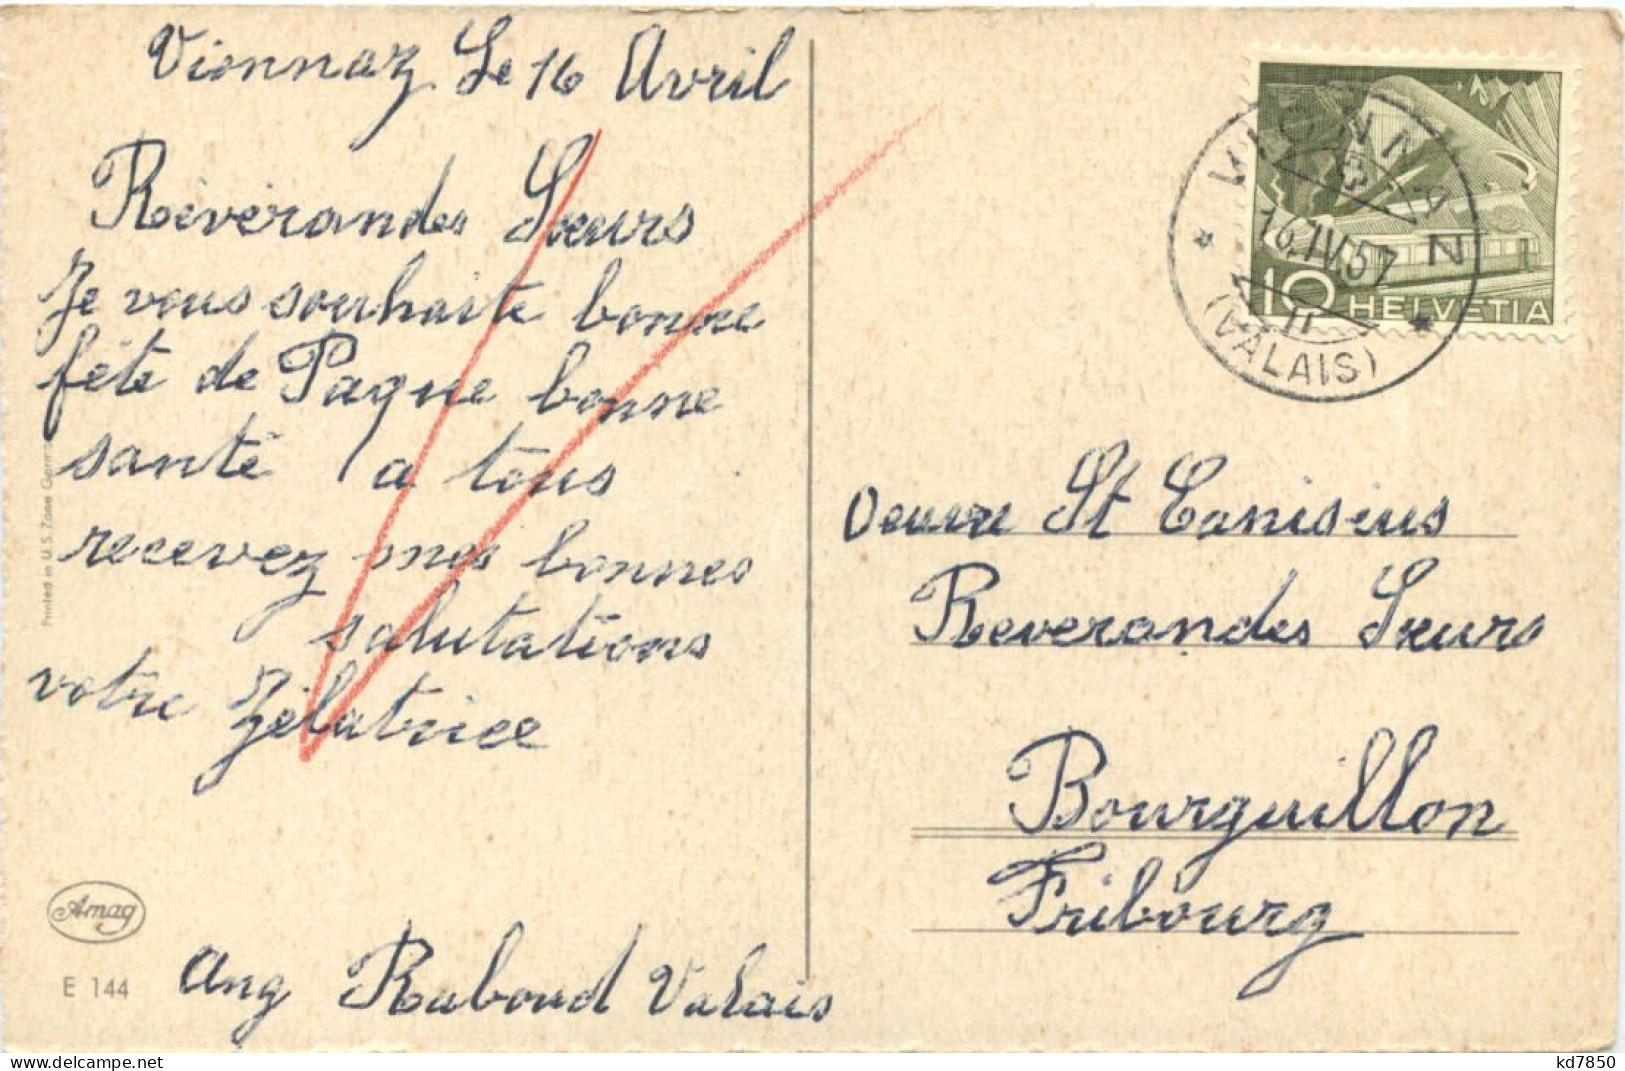 Vionnaz Le 16 Avril
Réverandes Sœurs
Je vous souhaite bonne
fête de Paque bonne
santé a tous
recevez mes bonnes
salutations
votre Zélatrice
Ang Raboud Valais
Printed in U.S. Zone Germ
Amag
E 144
VIONNAZ
16.IV.57
(VALAIS)
10 HELVETIA
Oeuvre St Canisius
Reverandes Sœurs
Bourguillon
Fribourg
delcampe.net
kd7850